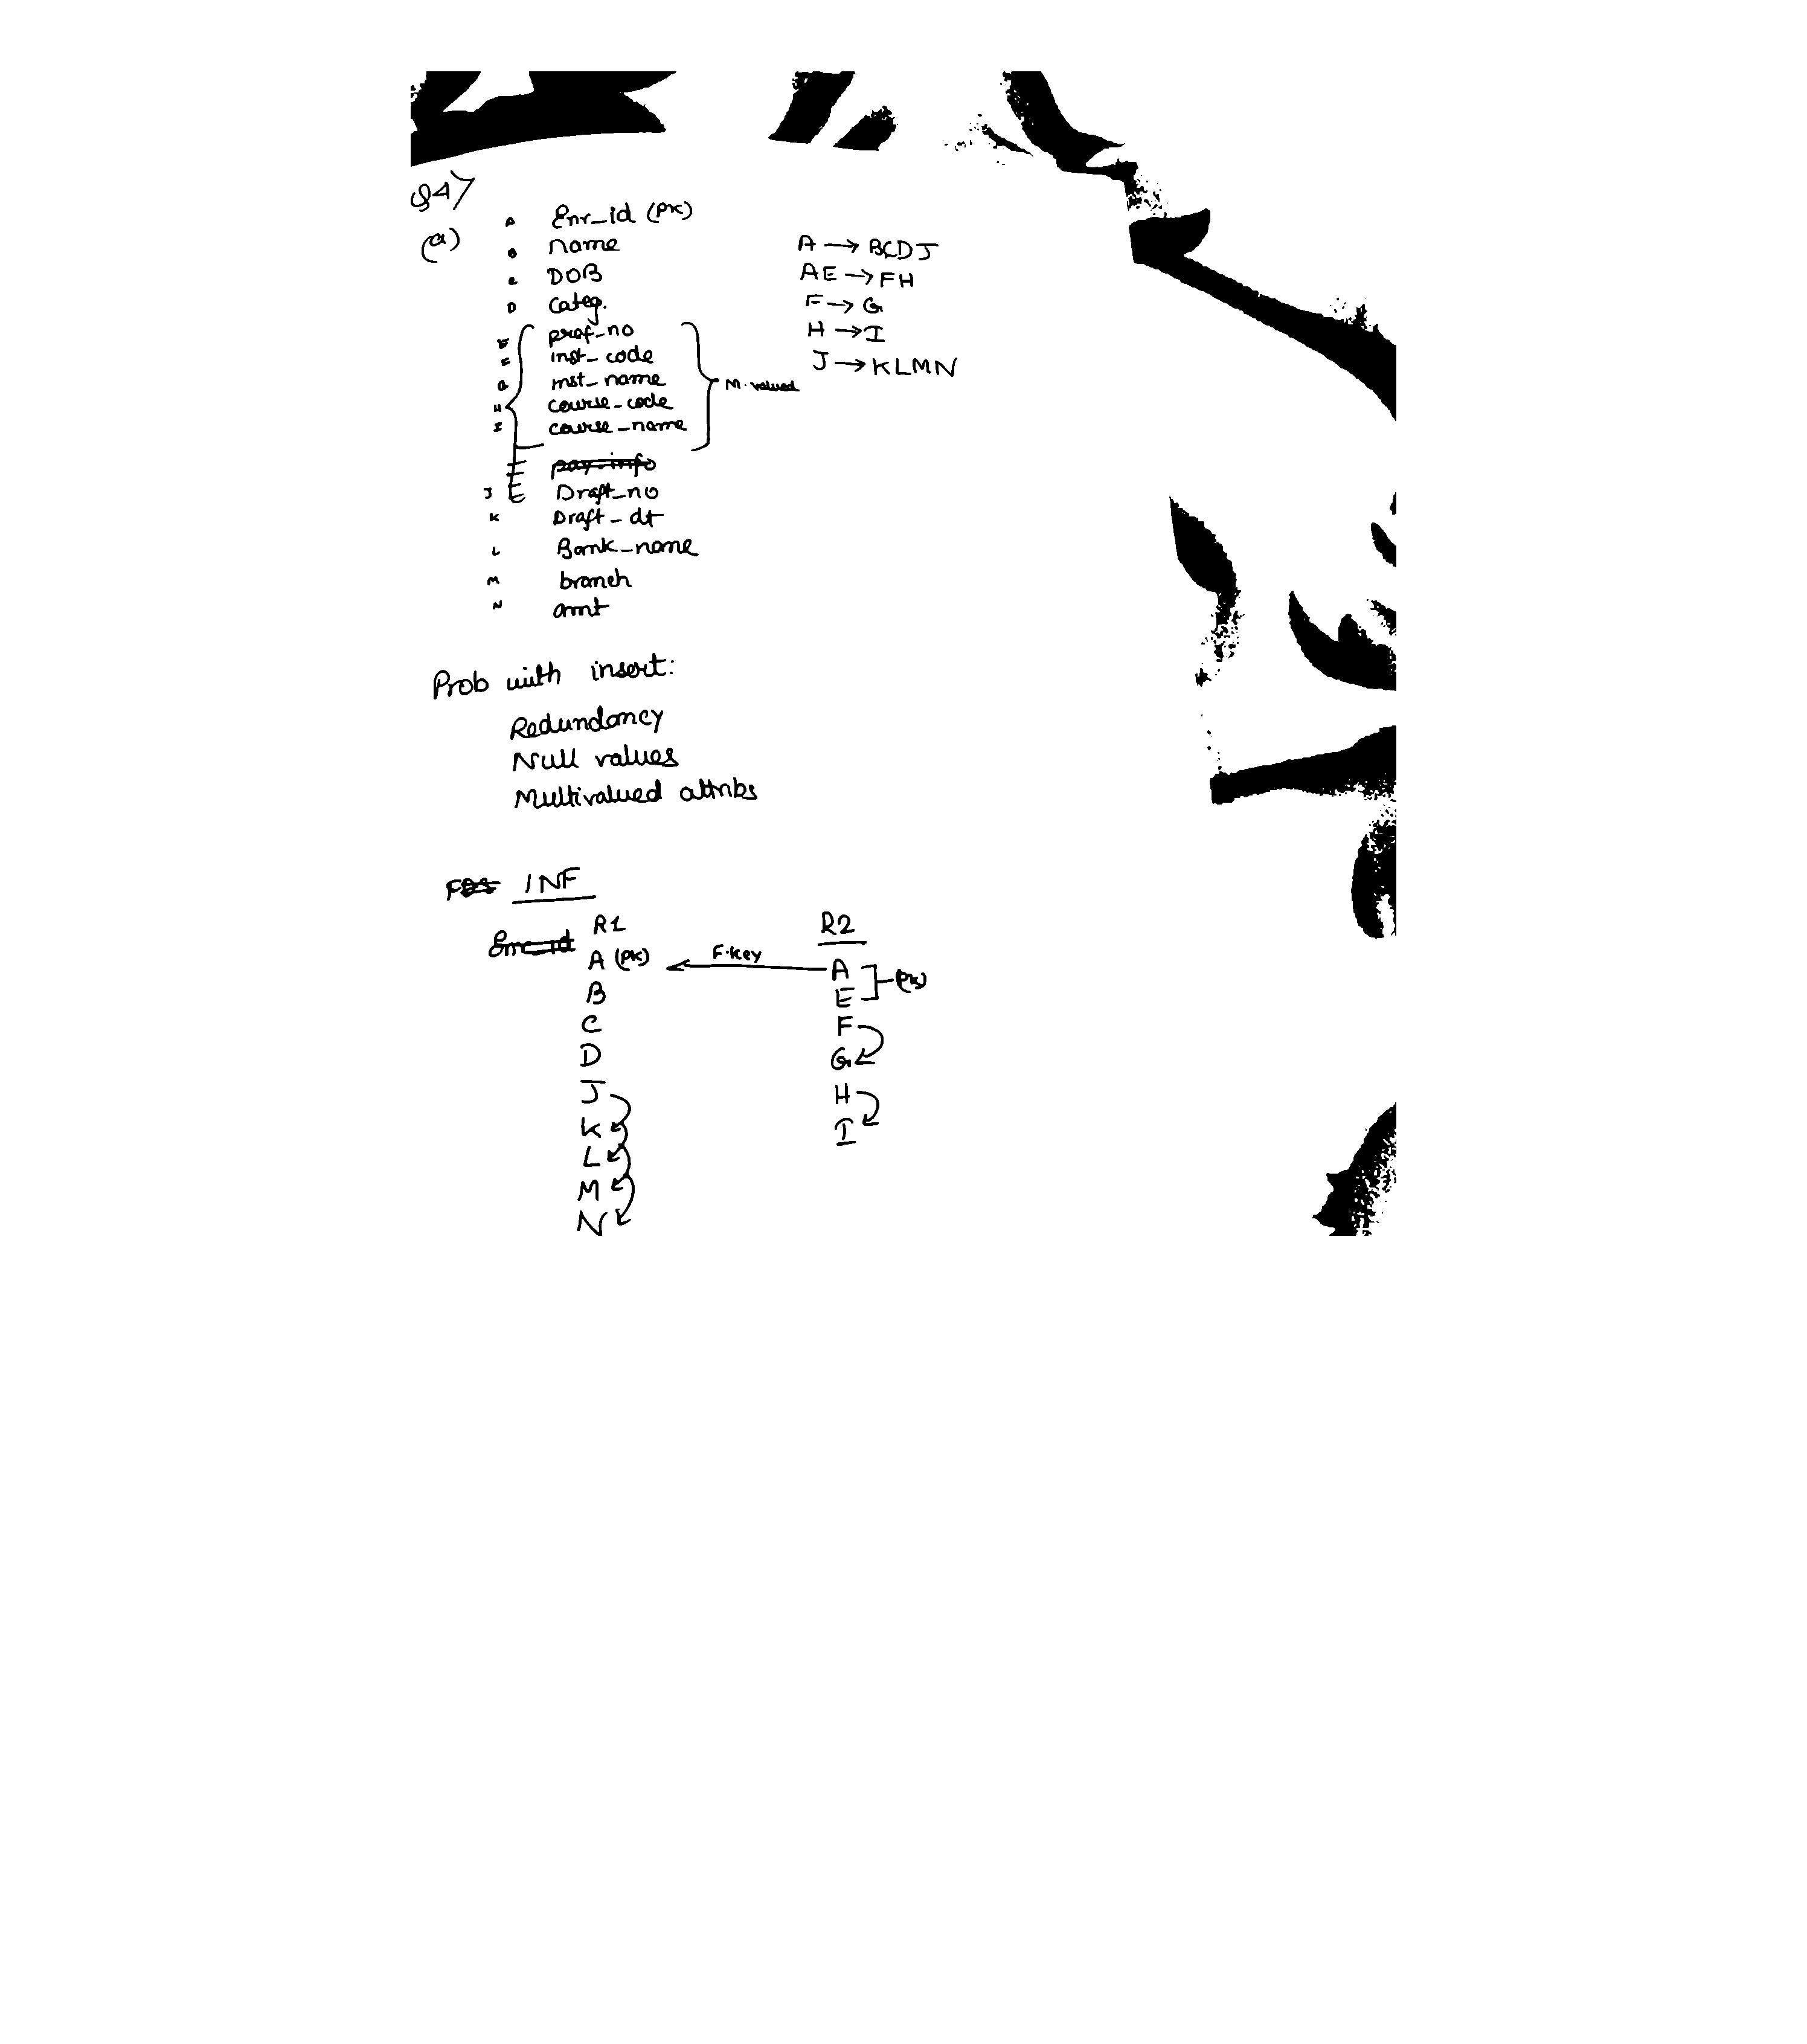 Q4>
(a)
A Enr_id (PK)
B name
C DOB
D Categ.
E pref_no
F inst_code
G inst_name
H course_code
I course_name
M.valued
pay_info
J Draft_no
K Draft_dt
L Bank_name
M branch
N amt
A → BCDJ
AE → FH
F → G
H → I
J → KLMN
Prob with insert:
Redundancy
Null values
Multivalued attribs
FDs 1NF
Enr_id R1
A (PK)
B
C
D
J
K
L
M
N
F.key
R2
A
E (PK)
F
G
H
I